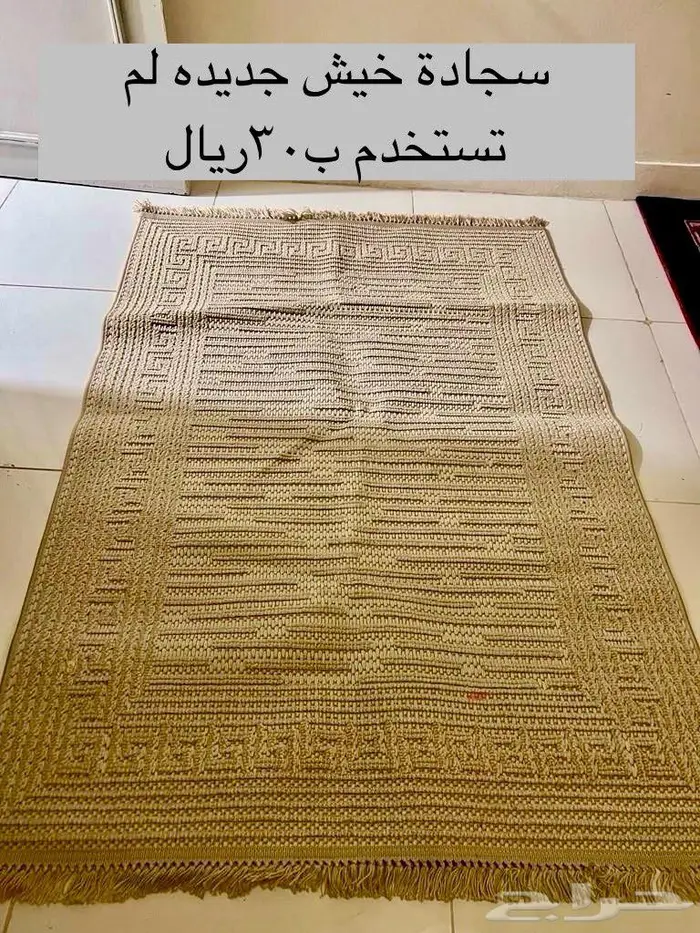 سجادة خيش جديده لم
تستخدم ب٣٠ريال
حراج